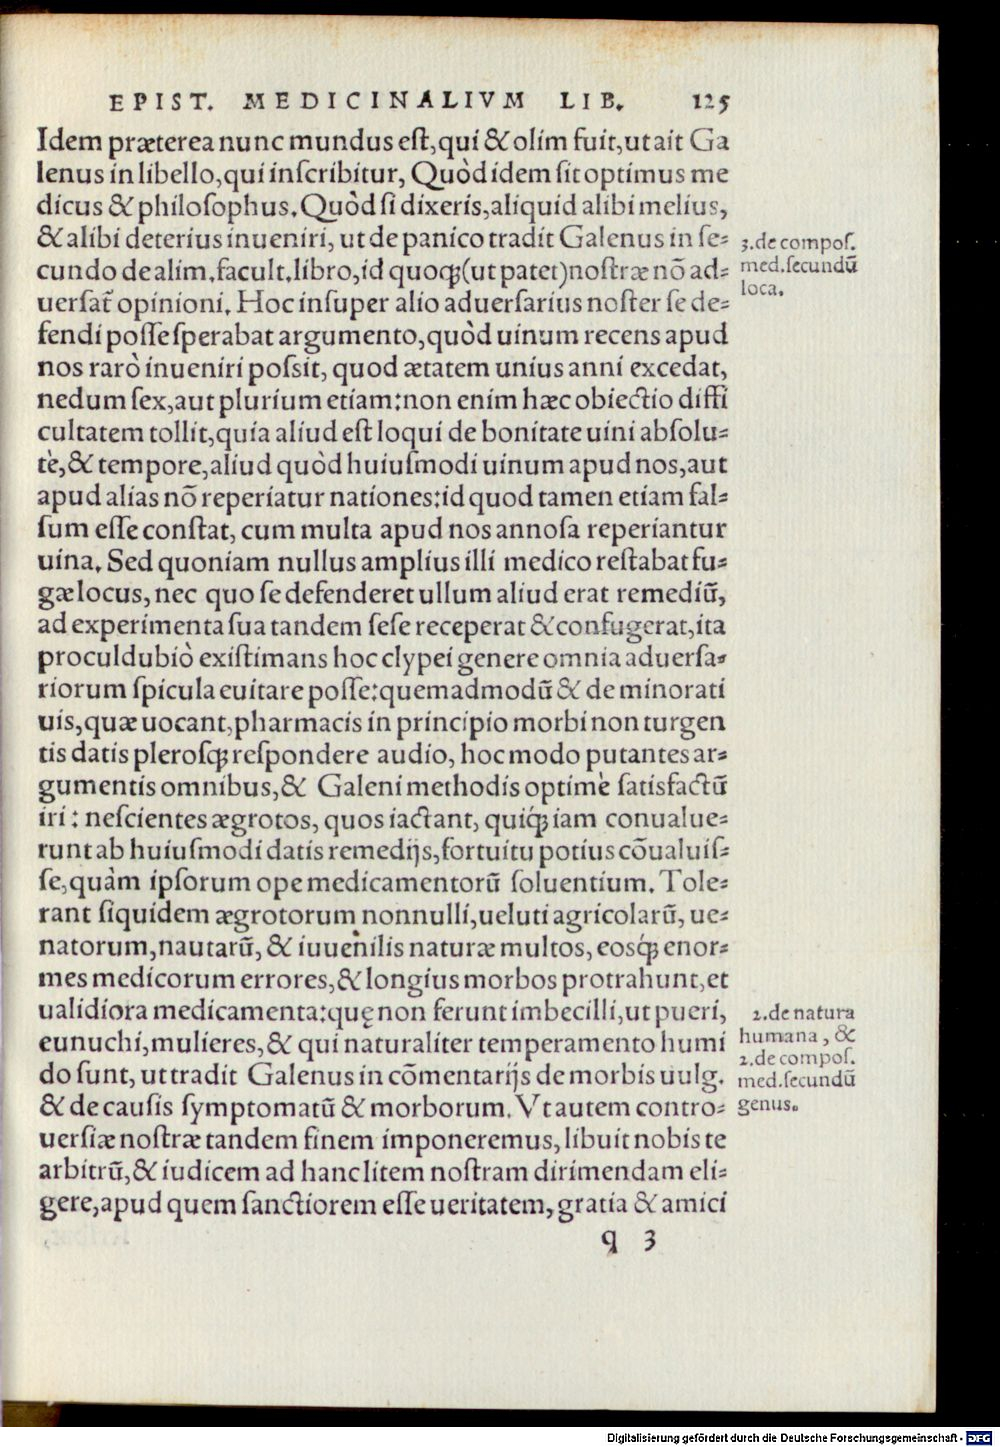 EPIST. MEDICINALIVM LIB. 125
Idem præterea nunc mundus eſt, qui & olim fuit, ut ait Ga
lenus in libello, qui inſcribitur, Quòd idem ſit optimus me
dicus & philoſophus. Quòd ſi dixeris, aliquid alibi melius,
& alibi deterius inueniri, ut de panico tradit Galenus in ſe-
cundo de alim. facult. libro, id quoqꝫ (ut patet) noſtræ nō ad-
uerſat̃ opinioni. Hoc inſuper alio aduerſarius noſter ſe de-
fendi poſſe ſperabat argumento, quòd uinum recens apud
nos rarò inueniri poſſit, quod ætatem unius anni excedat,
nedum ſex, aut plurium etiam: non enim hæc obiectio diffi
cultatem tollit, quia aliud eſt loqui de bonitate uini abſolu-
tè, & tempore, aliud quòd huiuſmodi uinum apud nos, aut
apud alias nō reperiatur nationes: id quod tamen etiam fal-
ſum eſſe conſtat, cum multa apud nos annoſa reperiantur
uina. Sed quoniam nullus amplius illi medico reſtabat fu-
gæ locus, nec quo ſe defenderet ullum aliud erat remediū,
ad experimenta ſua tandem ſeſe receperat & confugerat, ita
proculdubiò exiſtimans hoc clypei genere omnia aduerſa-
riorum ſpicula euitare poſſe: quemadmodū & de minorati
uis, quæ uocant, pharmacis in principio morbi non turgen
tis datis pleroſqꝫ reſpondere audio, hoc modo putantes ar-
gumentis omnibus, & Galeni methodis optimè ſatisfactū
iri: neſcientes ægrotos, quos iactant, quiqꝫ́ iam conualue-
runt ab huiuſmodi datis remedijs, fortuitu potius cōualuiſ-
ſe, quàm ipſorum ope medicamentorū ſoluentium. Tole-
rant ſiquidem ægrotorum nonnulli, ueluti agricolarū, ue-
natorum, nautarū, & iuuenilis naturæ multos, eosqꝫ́ enor-
mes medicorum errores, & longius morbos protrahunt, et
ualidiora medicamenta: quę non ferunt imbecilli, ut pueri,
eunuchi, mulieres, & qui naturaliter temperamento humi
do ſunt, ut tradit Galenus in cōmentarijs de morbis uulg.
& de cauſis ſymptomatū & morborum. Vt autem contro-
uerſiæ noſtræ tandem finem imponeremus, libuit nobis te
arbitrū, & iudicem ad hanc litem noſtram dirimendam eli-
gere, apud quem ſanctiorem eſſe ueritatem, gratia & amici
q 3
3. de compoſ.
med. ſecundū
loca.
2. de natura
humana, &
2. de compoſ.
med. ſecundū
genus.
Digitalisierung gefördert durch die Deutsche Forschungsgemeinschaft - DFG